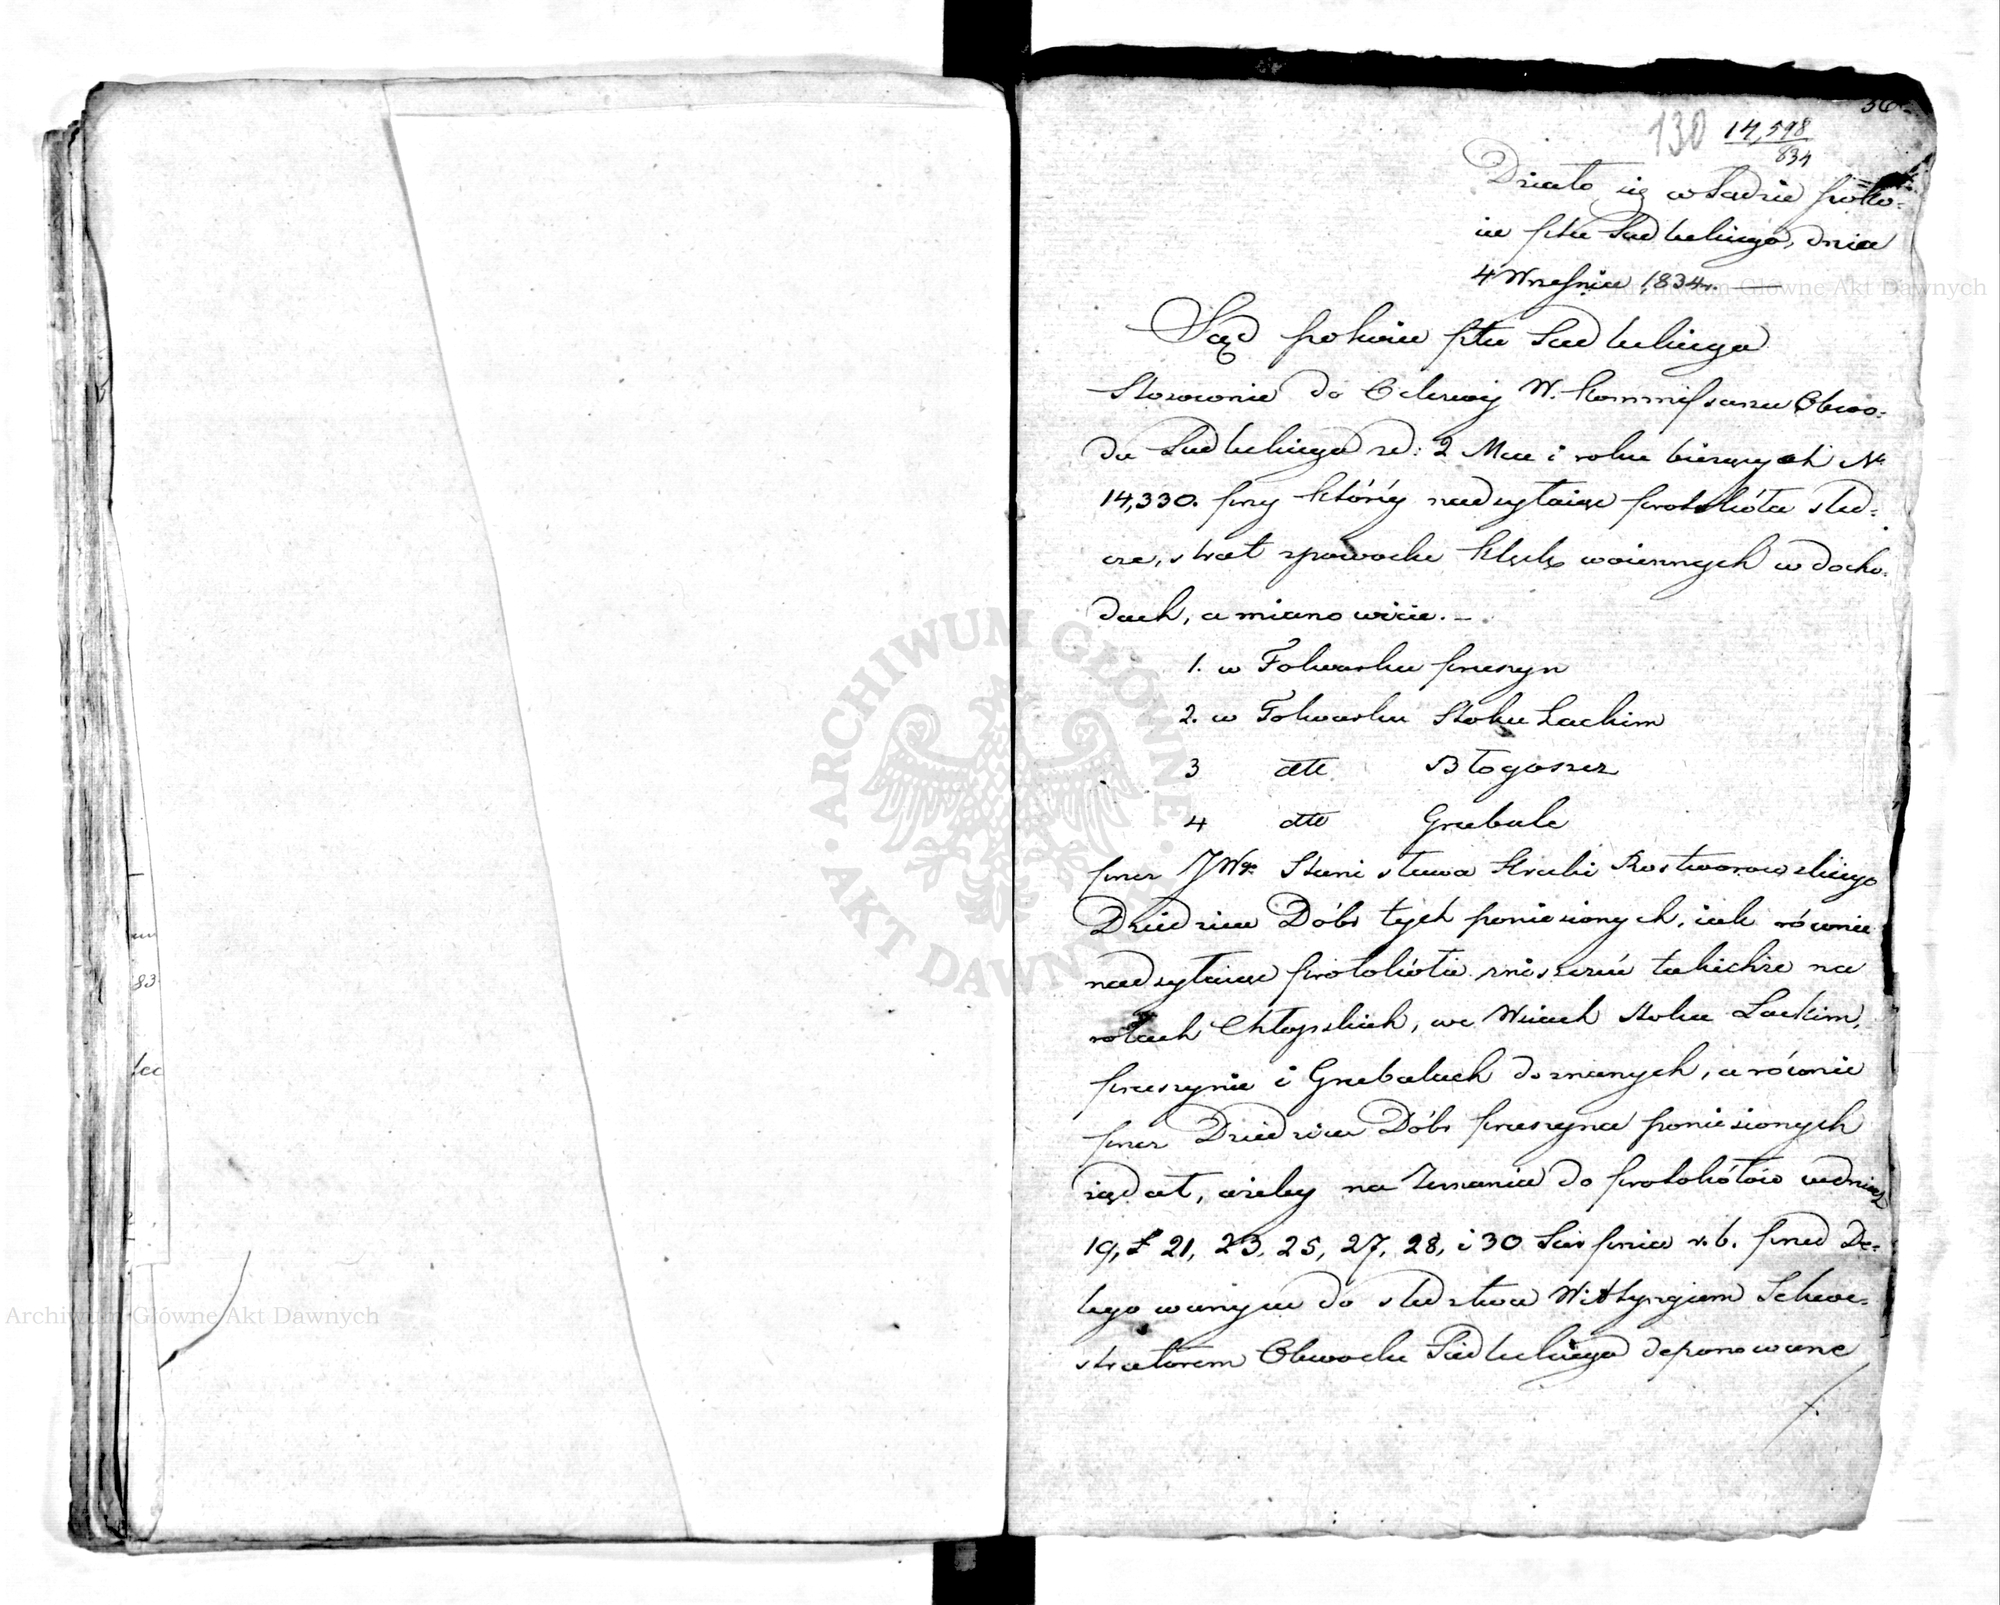 36
130 14,598
834
Działo się w Sądzie Poko-
iu Ptu Siedleckiego, dnia
4 Września 1834r.
Sąd pokoiu Ptu Siedleckiego
Stosownie do Odezwy W. Kommissarza Obwo-
du Siedleckiego zd: 2 Mca i roku bieżących N
14,330. przy któréy nadsyłaiąc protokóła śled-
cze, strat zpowodu klęsk woiennych w docho-
dach, a mianowicie. –
1. w Folwarku Pruszyn
2. w Folwarku Stoku Lackim
3 dtto Błogoszcz
4 dtto Grubale
przez JWgo Stanisława Hrabi Rostworowskiego
Dziedzica Dóbr tych poniesionych, iak równie
nadsyłaiąc protokóła zniszczeń takichże na
rolach Chłopskich, we Wsiach Stoku Lackim,
Pruszynie i Grubalach doznanych, a równie
przez Dziedzica Dóbr Pruszyna poniesionych
żądał, ażeby na Zeznania do protokółów wdniach
19, 21, 23, 25, 27, 28, i 30 Sierpnia r. b. przed De-
legowanym do śledztwa Sekwe-
stratorem Obwodu Siedleckiego deponowane
/.
83
Archiwum Główne Akt Dawnych
ARCHIWUM GŁÓWNE AKT DAWNYCH
Archiwum Główne Akt Dawnych